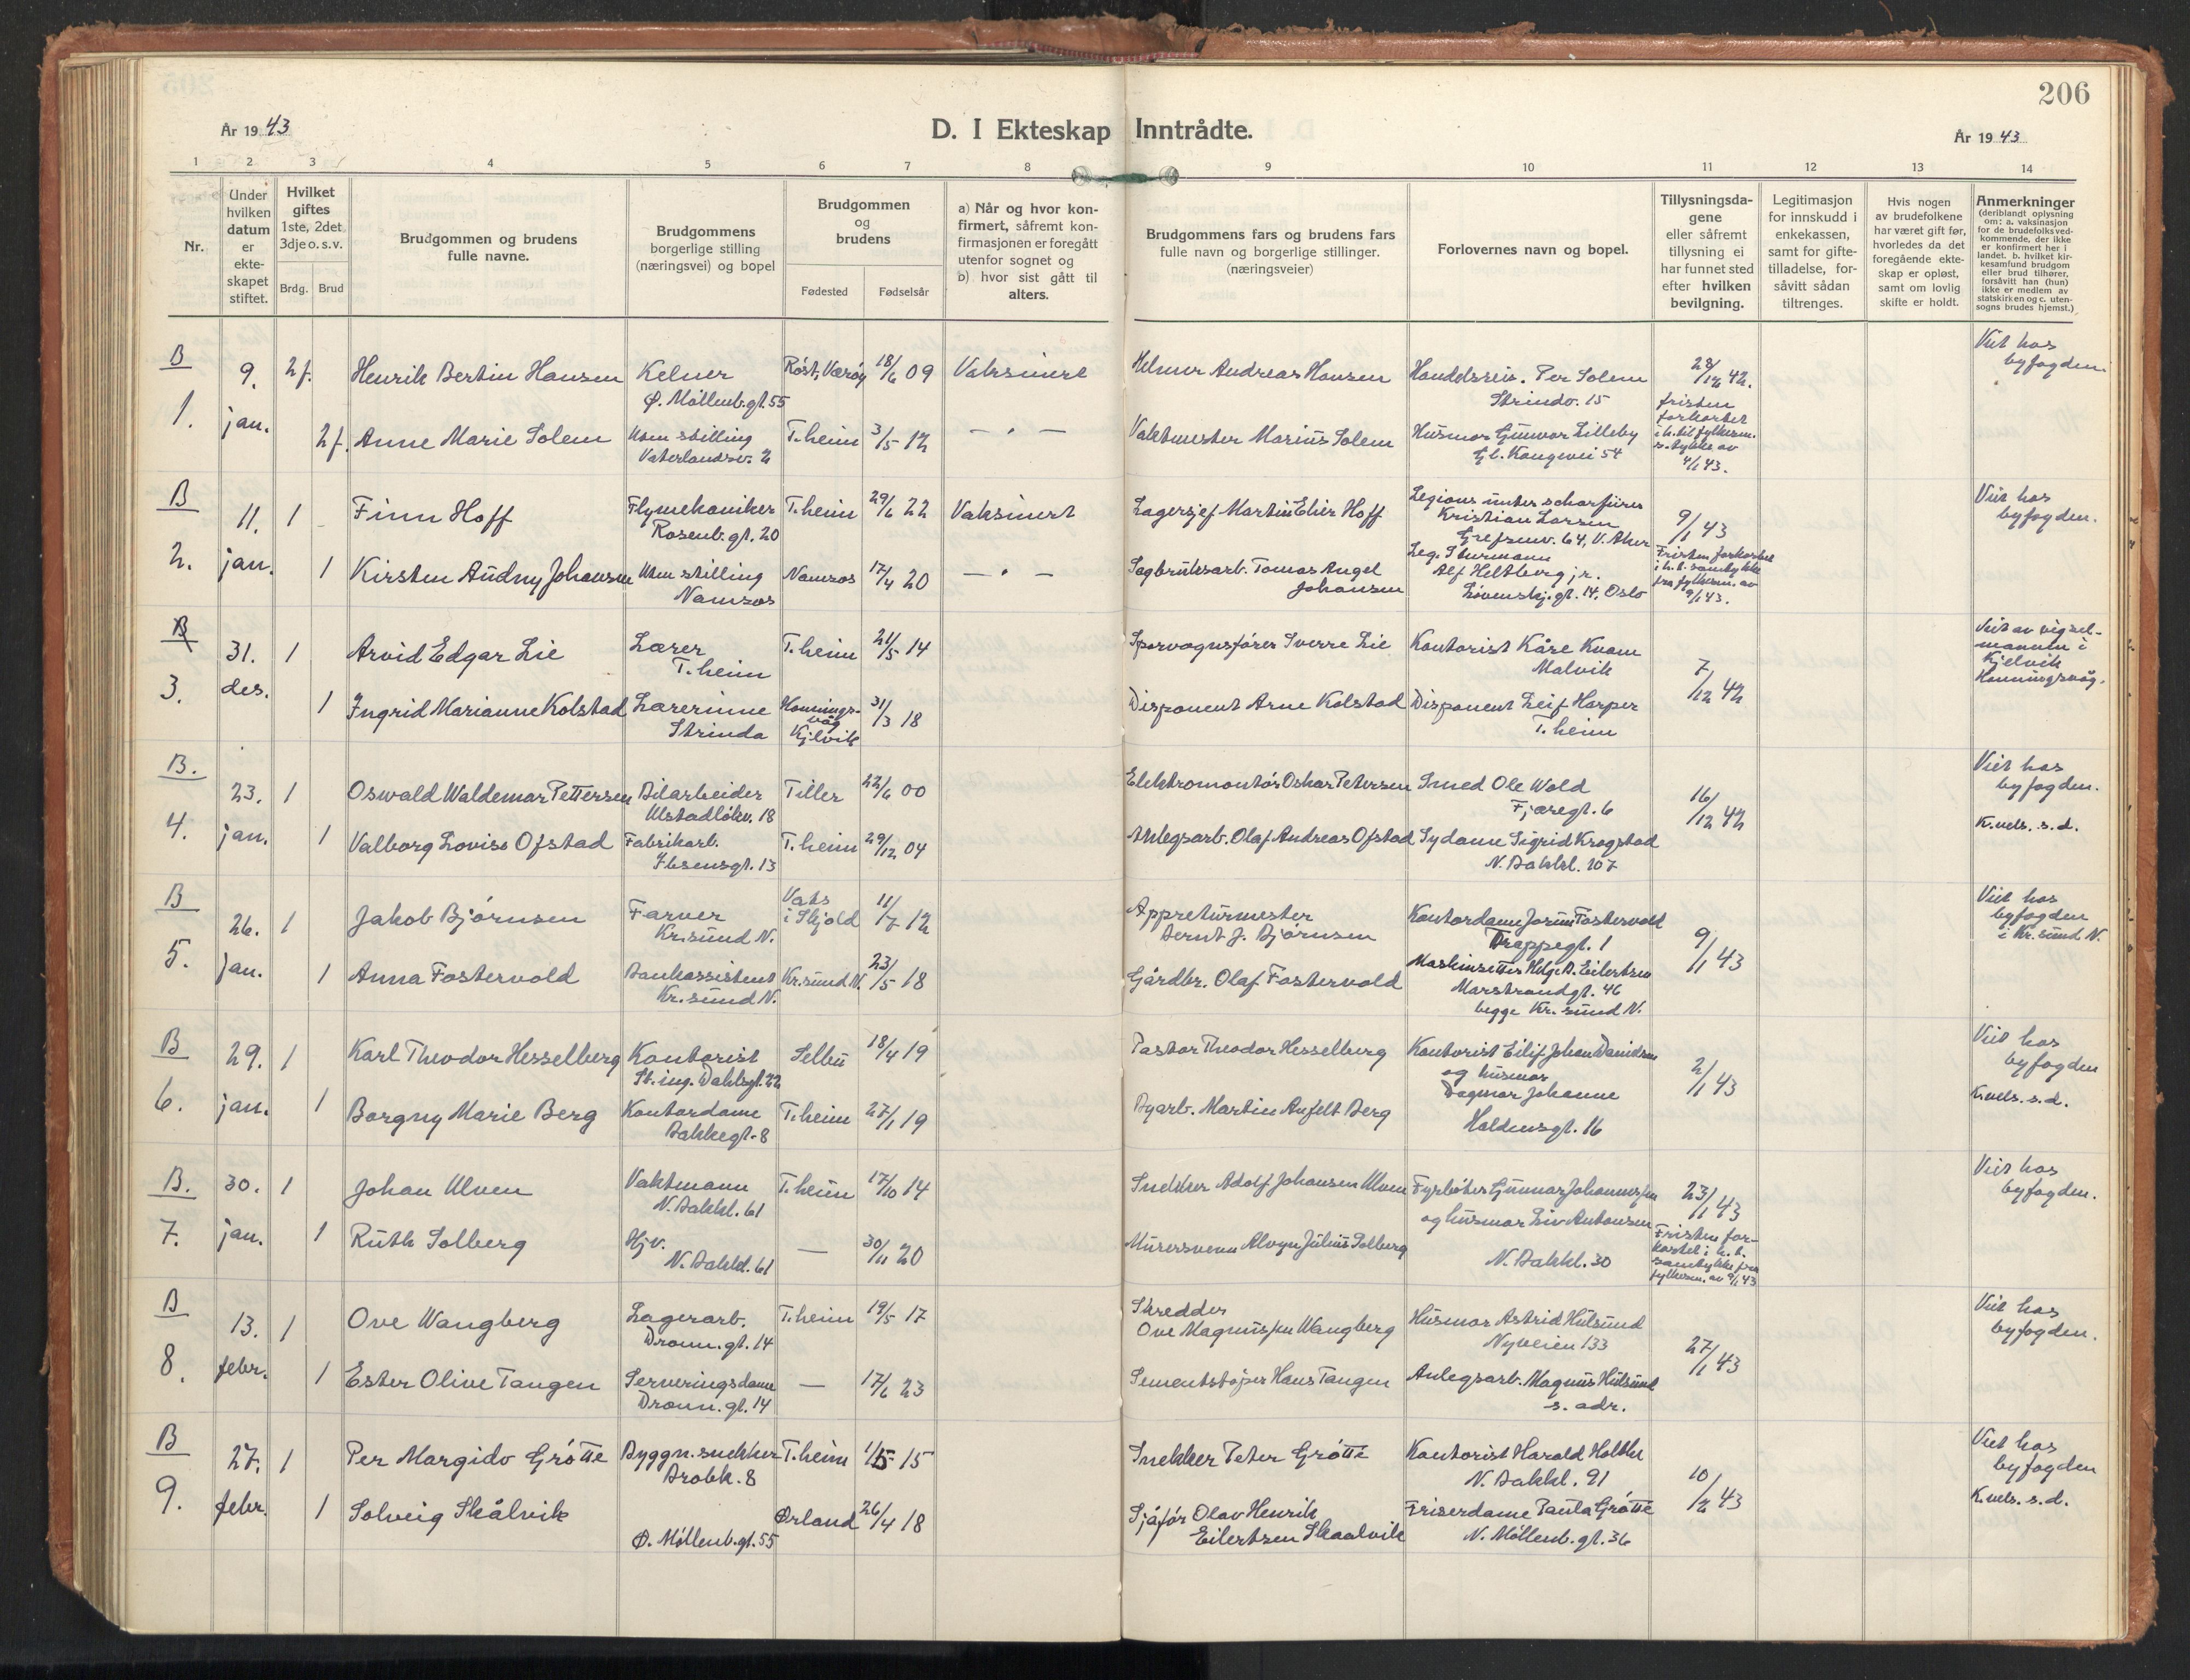 206
År 19 43
D. I Ekteskap Inntrådte.
År 19 43
1 2 3 4 5 6 7 8 9 10 11 12 13 14
Nr.
Under hvilken datum er ekte-skapet stiftet.
Hvilket giftes 1ste, 2det 3dje o. s. v.
Brdg. Brud
Brudgommen og brudens fulle navne.
Brudgommens borgerlige stilling (næringsvei) og bopel
Brudgommen og brudens
Fødested Fødselsår
a) Når og hvor kon-firmert, såfremt kon-firmasjonen er foregått utenfor sognet og
b) hvor sist gått til alters.
Brudgommens fars og brudens fars fulle navn og borgerlige stillinger. (næringsveier)
Forlovernes navn og bopel.
Tillysningsda-gene eller såfremt tillysning ei har funnet sted efter hvilken bevilgning.
Legitimasjon for innskudd i enkekassen, samt for gifte-tilladelse, for-såvitt sådan tiltrenges.
Hvis nogen av brudefolkene har været gift før, hvorledes da det foregående ekte-skap er opløst, samt om lovlig skifte er holdt.
Anmerkninger (deriblandt oplysning om: a. vaksinasjon for de brudefolks ved-kommende, der ikke er konfirmert her i landet. b. hvilket kir-kesamfund brudgom eller brud tilhører, forsåvitt han (hun) ikke er medlem av statskirken og c. uten-sogns brudes hjemst.)
B 9. 2f. Henrik Bertin Hansen Kelner Røst, Værøy 18/6 09 Vaksinert Helmer Andreas Hansen Handelsreis. Per Solem 28/12 42. Viet hos
Ø. Møllenb.gt. 55 Strindv. 15 fristen byfogden.
1. jan. 2f. Anne Marie Solem Uten stilling T.heim 3/5 12 — " — Vaktmester Marius Solem Husmor Gunvor Lilleby forkortet
Vaterlandsv. 2 Gl. Kongevei 54 i h. til fylkesm.
s. tykke av
4/1 43.
B 11. 1 Finn Hoff Flymekaniker T.heim 29/6 22 Vaksinert Lagersjef Martin Elier Hoff Legions unter scharfürer 9/1 43 Viet hos
Rosenb.gt. 20 Kristian Larsen byfogden.
Grefsenv. 64, V. Aker
2. jan. 1 Kirsten Audny Johansen Uten stilling Namsos 17/4 20 — " — Sagbruksarb. Tomas Angel Leg. Sturmann Fristen forkortet
Namsos Johansen Alf Heltberg jr. i h. t. samtykke
Løvenskj.gt. 14, Oslo fra fylkesm. av
9/1 43.
B 31. 1 Arvid Edgar Lie Lærer T.heim 21/5 14 Sporvognsfører Sverre Lie Kontorist Kåre Kvam 7/12 42 Viet av vigsel-
T.heim Malvik mannen i
3. des. 1 Ingrid Marianne Kolstad Lærerinne Honnings- 31/3 18 Disponent Arne Kolstad Disponent Leif Harper Kjelvik
Strinda våg T.heim Honningsvåg.
Kjelvik
B. 23. 1 Oswald Waldemar Pettersen Bilarbeider Tiller 22/6 00 Elektromontør Oskar Petersen Smed Ole Wold 16/12 42 Viet hos
Ulstadløkv. 18 Fjæregt. 6 byfogden.
4. jan. 1 Valborg Lovise Ofstad Fabrikarb. T.heim 29/12 04 Anlegsarb. Olaf Andreas Ofstad Sydame Sigrid Krogstad K.vels. s.d.
Ibsensgt. 13 N. Bakkl. 107
B 26. 1 Jakob Bjørnsen Farver Vats 11/7 12 Appreturmester Kontordame Jorun Fostervold 9/1 43 Viet hos
Kr.sund N. i Skjold Bernt J. Bjørnsen Trappegt. 1 byfogden
i Kr.sund N.
5. jan. 1 Anna Fostervold Bankassistent Kr.sund N. 23/5 18 Gårdbr. Olaf Fostervold Maskinsetter Helge B. Eilertsen
Kr.sund N. Marstrandgt. 46
begge Kr.sund N.
B 29. 1 Karl Theodor Hesselberg Kontorist Selbu 18/4 19 Pastor Theodor Hesselberg Kontorist Eilif Johan Davidsen 2/1 43 Viet hos
St. ing. Dahlsgt. 22 og husmor byfogden
6. jan. 1 Borgny Marie Berg Kontordame T.heim 27/1 19 Byarb. Martin Anfelt Berg Dagmar Johanne K.vels. s.d.
Bakkegt. 8 Haldensgt. 16
B. 30. 1 Johan Ulven Vaktmann T.heim 17/10 14 Snekker Adolf Johansen Ulven Fyrbøter Gunnar Johannessen 23/1 43 Viet hos
N. Bakkl. 61 og husmor Liv Antonsen byfogden.
7. jan. 1 Ruth Solberg Hjv. — 30/11 20 Murersvenn Alvyn Julius Solberg N. Bakkl. 30 Fristen for-
N. Bakkl. 61 kortet i h. t.
samtykke fra
fylkesm. av 9/1 43
B 13. 1 Ove Wangberg Lagerarb. T.heim 19/5 17 Skredder Husmor Astrid Hulsund 27/1 43 Viet hos
Dronn.gt. 14 Ove Magnussen Wangberg Nyveien 133 byfogden.
8. febr. 1 Ester Olive Tangen Serveringsdame — 17/6 23 Sementstøper Hans Tangen Anlegsarb. Magnus Hulsund
Dronn.gt. 14 s. adr.
B 27. 1 Per Margido Grøtte Byggn.snekker T.heim 1/5 15 Snekker Peter Grøtte Kontorist Harald Holthe 10/2 43 Viet hos
Brobk. 8 N. Bakkl. 91 byfogden
9. febr. 1 Solveig Skålvik Ørland 26/4 18 Sjåfør Olav Henrik Friserdame Paula Grøtte K.vels. s.d.
Ø. Møllenb.gt. 55 Eilertsen Skaalvik N. Møllenb.gt. 36